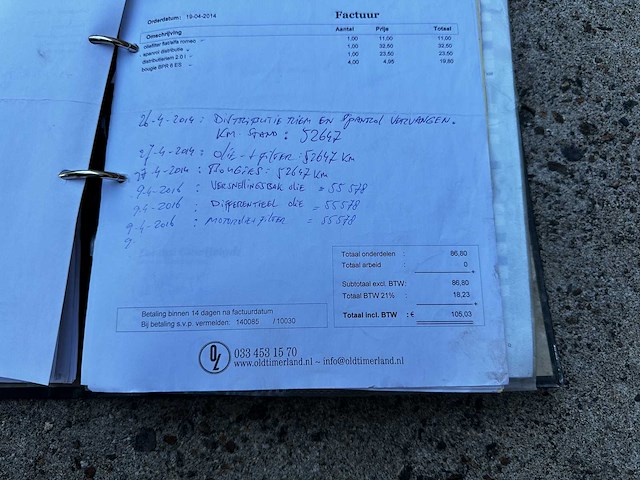 Orderdatum: 19-04-2014 Factuur
Omschrijving Aantal Prijs Totaal
oliefilter fiat/alfa romeo 1,00 11,00 11,00
spanrol distributie 1,00 32,50 32,50
distributieriem 2.0 l 1,00 23,50 23,50
bougie BPR 6 ES 4,00 4,95 19,80
26-4-2014: DISTRIBUTIERIEM EN SPANROL VERVANGEN.
KM STAND: 52647
27-4-2014: OLIE-+FILTER: 52647 KM
27-4-2014: BOUGIES: 52647 KM
9-4-2016 : VERSNELLINGSBAK OLIE = 55578
9-4-2016 : DIFFERENTIEEL OLIE = 55578
9-4-2016 : MOTOROLIE+FILTER = 55578
9.
Totaal onderdelen : 86,80
Totaal arbeid : 0
Subtotaal excl. BTW: 86,80
Totaal BTW 21% : 18,23
Totaal incl. BTW : € 105,03
Betaling binnen 14 dagen na factuurdatum
Bij betaling s.v.p. vermelden: 140085 /10030
OL
033 453 15 70
www.oldtimerland.nl – info@oldtimerland.nl